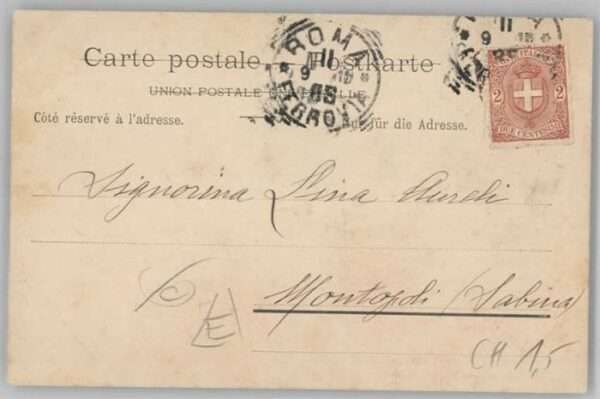 Carte postale Postkarte
UNION POSTALE UNIVERSELLE
Côté réservé à l'adresse. Nur für die Adresse.
ROMA
11
9
05
FERROVIA
11
9
2 2
DUE CENTESIMI
Signorina Lina Aureli
Montopoli (Sabina)
E
CH 1,5